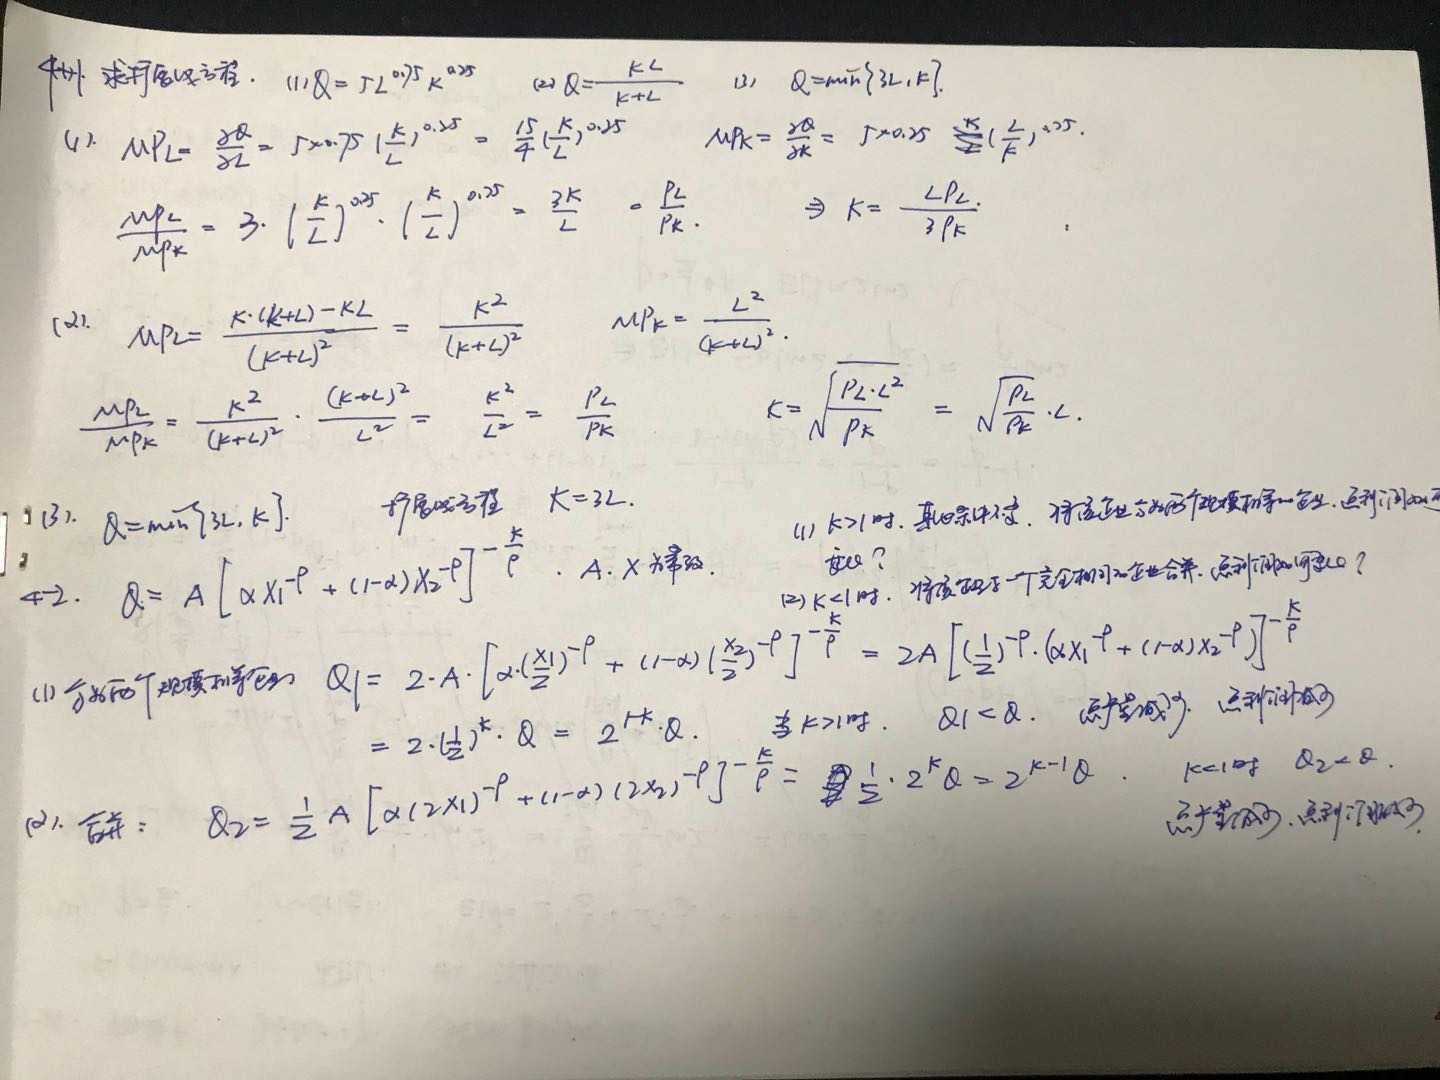 4-1. 求扩展线方程. (1) Q = 5L^0.75 K^0.25 (2) Q = KL/(K+L) (3) Q = min{3L, K}.
(1). MPL = ∂Q/∂L = 5×0.75 (K/L)^0.25 = 15/4 (K/L)^0.25 MPK = ∂Q/∂K = 5×0.25 (L/K)^0.75.
MPL/MPK = 3·(K/L)^0.25·(K/L)^0.75 = 3K/L = PL/PK. ⇒ K = LPL/3PK.
(2). MPL = (K·(K+L)-KL)/(K+L)^2 = K^2/(K+L)^2 MPK = L^2/(K+L)^2.
MPL/MPK = K^2/(K+L)^2 · (K+L)^2/L^2 = K^2/L^2 = PL/PK K = √(PL·L^2/PK) = √(PL/PK)·L.
(3). Q = min{3L, K}. 扩展线方程 K = 3L.
4-2. Q = A[αX1^-ρ + (1-α)X2^-ρ]^-K/ρ. A. X 为常数.
(1) K>1时. 其他条件不变. 将该企业分为两个规模相等的企业. 总利润如何
变化?
(2) K<1时. 将该企业与一个完全相同的企业合并. 总利润如何变化?
(1) 分为两个规模相等企业 Q1 = 2·A·[α·(X1/2)^-ρ + (1-α)(X2/2)^-ρ]^-K/ρ = 2A[(1/2)^-ρ·(αX1^-ρ + (1-α)X2^-ρ)]^-K/ρ
= 2·(1/2)^K·Q = 2^1-K·Q. 当K>1时. Q1<Q. 总产量减少. 总利润减少
(2). 合并: Q2 = 1/2 A[α(2X1)^-ρ + (1-α)(2X2)^-ρ]^-K/ρ = 1/2·2^K Q = 2^K-1 Q. K<1时 Q2<Q.
总产量减少. 总利润减少.